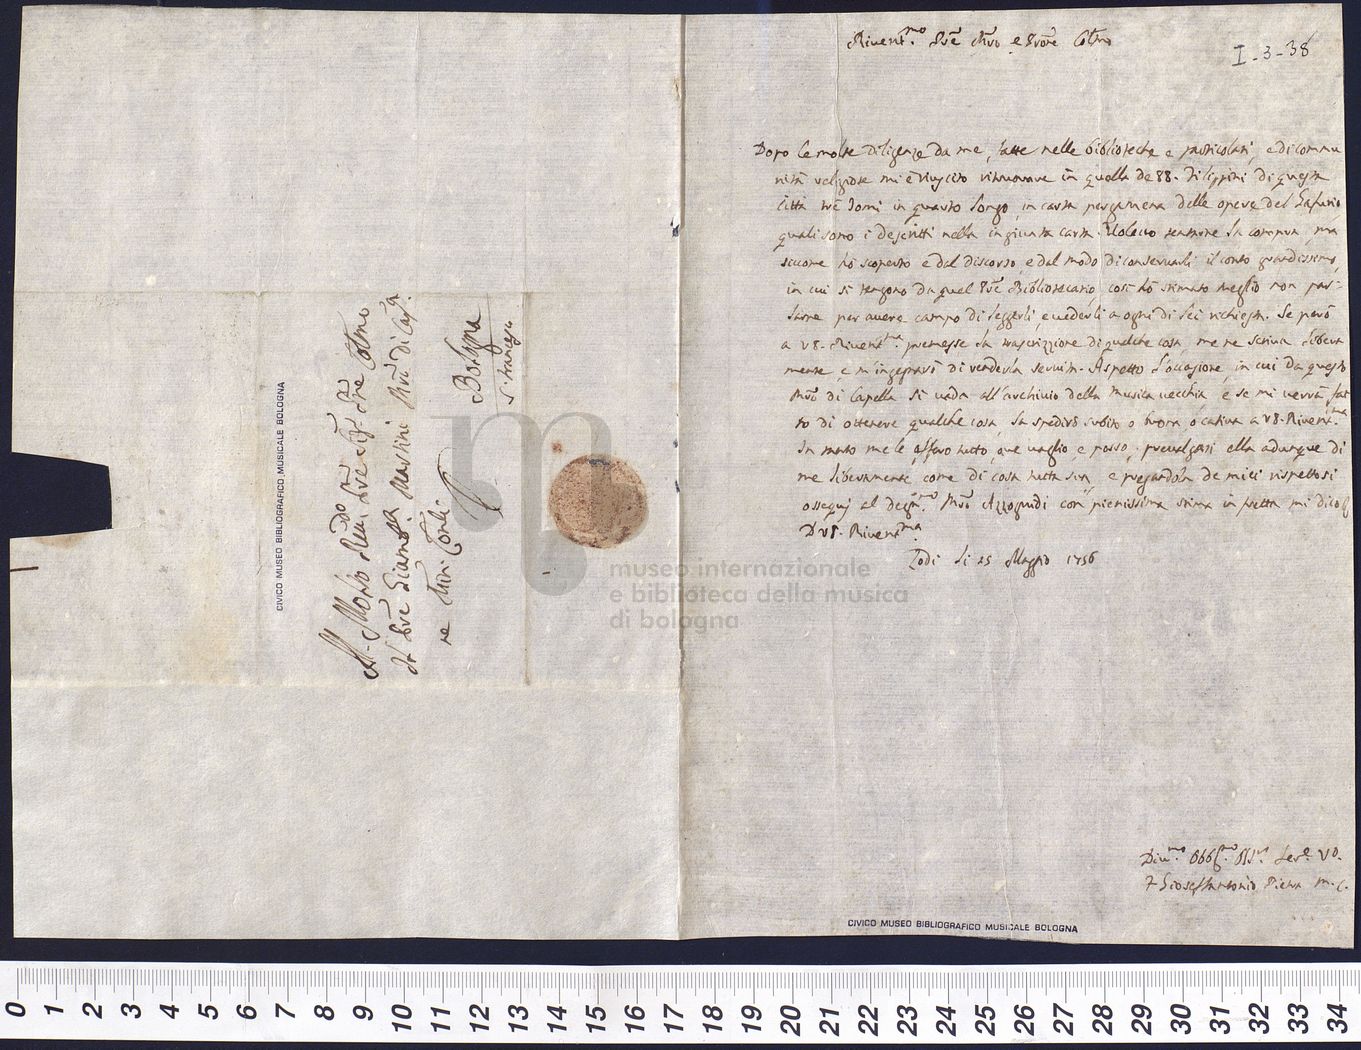 I-3-38
Rivermo Pre Mro e Prone Colmo
Dopo le molte diligenze da me fatte nelle biblioteche e particolari, e di commu
nità religiose mi è riuscito ritrovare in quella de PP. Filippini di questa
Città tre Tomi in quarto longo, in carta pergamena delle opere del Gafurio
quali sono i descritti nella ingiunta carta. Volevo tentarne la compra, ma
siccome hò scoperto e dal discorso, e dal modo di conservarli il conto grandissimo,
in cui si tengono da quel Pre Bibliotecario così hò stimato meglio non par-
larne per avere campo di leggerli, e vederli a ogni di Lei richiesta. Se però
a VP. Rivermа premesse la trascrizzione di qualche cosa, me ne scriva libera
mente, e m'ingegnarò di renderla servita. Aspetto l'occasione, in cui da questo
Mro di Capella si vada all'archivio della Musica vecchia, e se mi verrà fat
to di ottenere qualche cosa, la spedirò subito o buona, o cattiva a VP. Riverma
In tanto me le offero tutto, che vaglio e posso, prevalgasi ella adunque di
me liberamente, come di cosa tutta sua, e pregandola de miei rispettosi
ossequj al degmo Mro Azzoguidi con pienissima stima in fretta mi dico
D VP. Riverma
Todi li 25 Maggio 1756
Divmo Obbligmo Servre Vo.
F Gioseffantonio Pietra M.C.
Al Molto Rendo Pre Sigr Pre Colmo
Il Pre Giamba Martini Mro di Capa
ne Miri Conli
Bologna
S. Francesco
CIVICO MUSEO BIBLIOGRAFICO MUSICALE BOLOGNA
CIVICO MUSEO BIBLIOGRAFICO MUSICALE BOLOGNA
museo internazionale
e biblioteca della musica
di bologna
0 1 2 3 4 5 6 7 8 9 10 11 12 13 14 15 16 17 18 19 20 21 22 23 24 25 26 27 28 29 30 31 32 33 34